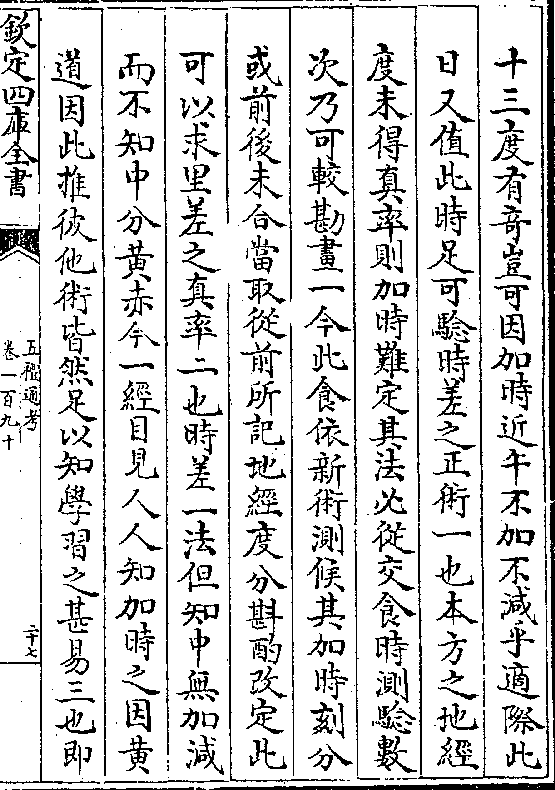 十三度有奇豈可因加時近午不加不減乎適際此
日又值此時足可驗時差之正術一也本方之地經
度未得真率則加時難定其法必從交食時測驗數
次乃可較勘畫一今此食依新術測候其加時刻分
或前後未合當取從前所記地經度分斟酌改定此
可以求里差之真率二也時差一法但知中無加減
而不知中分黃赤今一經目見人人知加時之因黃
道因此推彼他術皆然足以知學習之甚易三也即
欽定四庫全書
五禮通考
卷一百九十
二十七